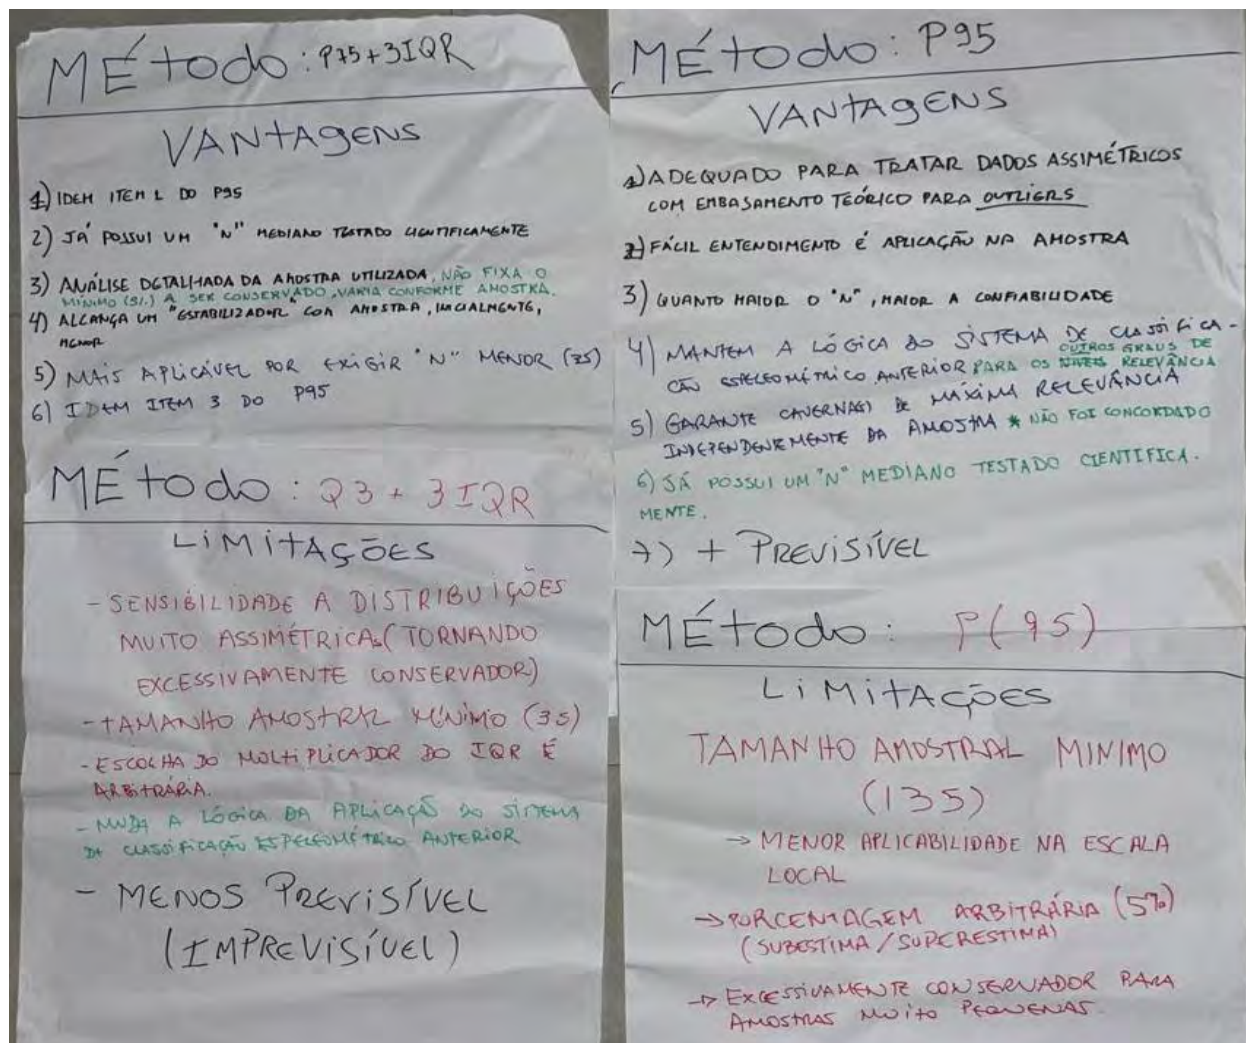 MÉtodo: P75+3IQR
VANtAGENS
1) IDEM ITEM 1 DO P95
2) JÁ POSSUI UM "N" MEDIANO TESTADO CIENTIFICAMENTE
3) ANÁLISE DETALHADA DA AMOSTRA UTILIZADA, NÃO FIXA O
MÍNIMO (5%) A SER CONSERVADO, VARIA CONFORME AMOSTRA.
4) ALCANÇA UM "ESTABILIZADOR" COM AMOSTRA, INICIALMENTE,
MENOR
5) MAIS APLICÁVEL POR EXIGIR "N" MENOR (35)
6) IDEM ITEM 3 DO P95
MÉtodo: Q3 + 3IQR
LiMitAÇÕES
- SENSIBILIDADE A DISTRIBUIÇÕES
MUITO ASSIMÉTRICAS (TORNANDO
EXCESSIVAMENTE CONSERVADOR)
- TAMANHO AMOSTRAL MÍNIMO (35)
- ESCOLHA DO MULTIPLICADOR DO IQR É
ARBITRÁRIA.
- MUDA A LÓGICA DA APLICAÇÃO DO SISTEMA
DE CLASSIFICAÇÃO ESPELEOMÉTRICO ANTERIOR
- MENOS PREVISÍVEL
(IMPREVISÍVEL)
MÉtodo: P95
VANtAGENS
1) ADEQUADO PARA TRATAR DADOS ASSIMÉTRICOS
COM EMBASAMENTO TEÓRICO PARA OUTLIERS
2) FÁCIL ENTENDIMENTO E APLICAÇÃO NA AMOSTRA
3) QUANTO MAIOR O "N", MAIOR A CONFIABILIDADE
4) MANTEM A LÓGICA DO SISTEMA DE CLASSIFICA-
ÇÃO ESPELEOMÉTRICO ANTERIOR PARA OS OUTROS GRAUS DE RELEVÂNCIA
5) GARANTE CAVERNA(S) DE MÁXIMA RELEVÂNCIA
INDEPENDENEMENTE DA AMOSTRA * NÃO FOI CONCORDADO
6) JÁ POSSUI UM "N" MEDIANO TESTADO CIENTIFICA.
MENTE.
7) + PREVISÍVEL
MÉtodo: P(95)
LiMitAÇÕES
TAMANHO AMOSTRAL MINIMO
(135)
→ MENOR APLICABILIDADE NA ESCALA
LOCAL
→ PORCENTAGEM ARBITRÁRIA (5%)
(SUBESTIMA/SUPERESTIMA)
→ EXCESSIVAMENTE CONSERVADOR PARA
AMOSTRAS MUITO PEQUENAS.